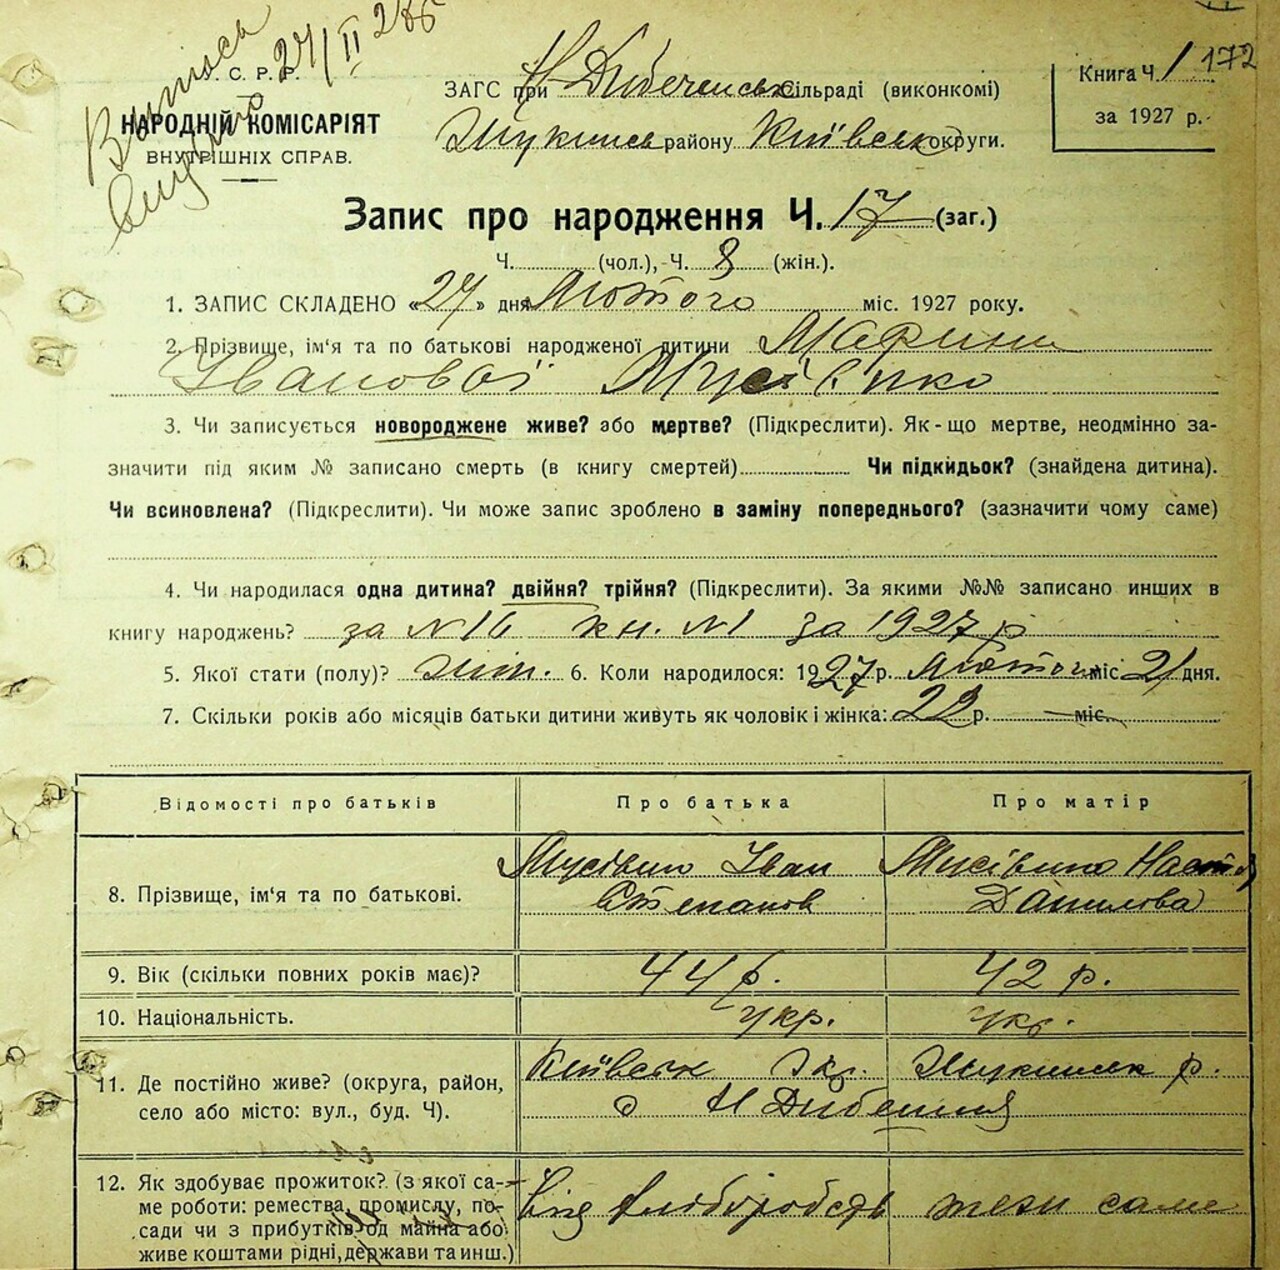 Витяг видано 27/II 285
172
С. Р. Р.
НАРОДНІЙ КОМІСАРІЯТ
ВНУТРІШНІХ СПРАВ.
ЗАГС при Н Дибечинськ Сільраді (виконкомі)
району Київськ округи.
Книга Ч. 1
за 1927 р.
Запис про народження Ч. 17 (заг.)
Ч. (чол.), - Ч. 8 (жін.).
1. ЗАПИС СКЛАДЕНО «27» дня Лютого міс. 1927 року.
2. Прізвище, ім'я та по батькові народженої дитини Марини
Іванової Мусієнко
3. Чи записується новороджене живе? або мертве? (Підкреслити). Як-що мертве, неодмінно за-
значити під яким № записано смерть (в книгу смертей) Чи підкидьок? (знайдена дитина).
Чи всиновлена? (Підкреслити). Чи може запис зроблено в заміну попереднього? (зазначити чому саме)
4. Чи народилася одна дитина? двійня? трійня? (Підкреслити). За якими №№ записано инших в
книгу народжень? за N 16 кн. N1 за 1927 р
5. Якої стати (полу)? жін. 6. Коли народилося: 1927 р. Лютого міс. 21 дня.
7. Скільки років або місяців батьки дитини живуть як чоловік і жінка: 22 р. міс.
Відомості про батьків Про батька Про матір
8. Прізвище, ім'я та по батькові.
Іван
Степанов
Настя
Данилова
9. Вік (скільки повних років має)? 44 р. 42 р.
10. Національність. укр. укр.
11. Де постійно живе? (округа, район,
село або місто: вул., буд. Ч).
Київськ Окр. р.
с Н
12. Як здобуває прожиток? (з якої са-
ме роботи: ремества, промислу, по-
сади чи з прибутків од майна або
живе коштами рідні, держави та инш.)
Від теж саме